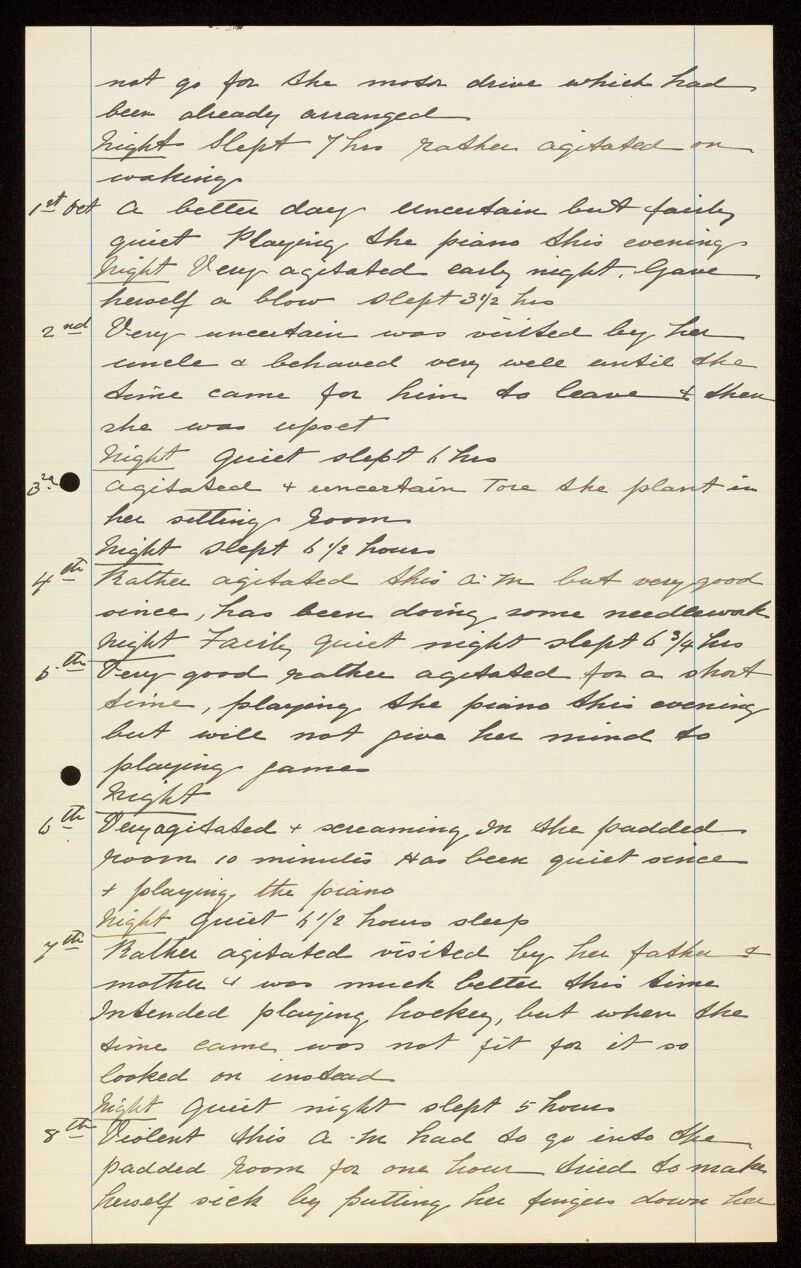 not go for the motor drive which had
been already arranged
Night Slept 7 hrs rather agitated on
waking
1st Oct A better day uncertain but fairly
quiet Playing the piano this evening
Night Very agitated early night. Gave
herself a blow slept 3 1/2 hrs
2nd Very uncertain was visited by her
uncle & behaved very well until the
time came for him to leave & then
she was upset
Night Quiet slept 6 hrs
3rd agitated & uncertain Tore the plant in
her sitting room
Night slept 6 1/2 hours
4th Rather agitated this a.m but very good
since, has been doing some needlework
Night Fairly quiet night slept 6 3/4 hrs
5th Very good rather agitated for a short
time, playing the piano this evening
but will not give her mind to
playing games
Night
6th Very agitated & screaming In the padded
room 10 minutes Has been quiet since
& playing the piano
Night Quiet 6 1/2 hours sleep
7th Rather agitated visited by her father &
mother & was much better this time
Intended playing hockey, but when the
time came was not fit for it so
looked on instead
Night Quiet night slept 5 hours
8th Violent this a.m had to go into the
padded room for one hour tried to make
herself sick by putting her fingers down her